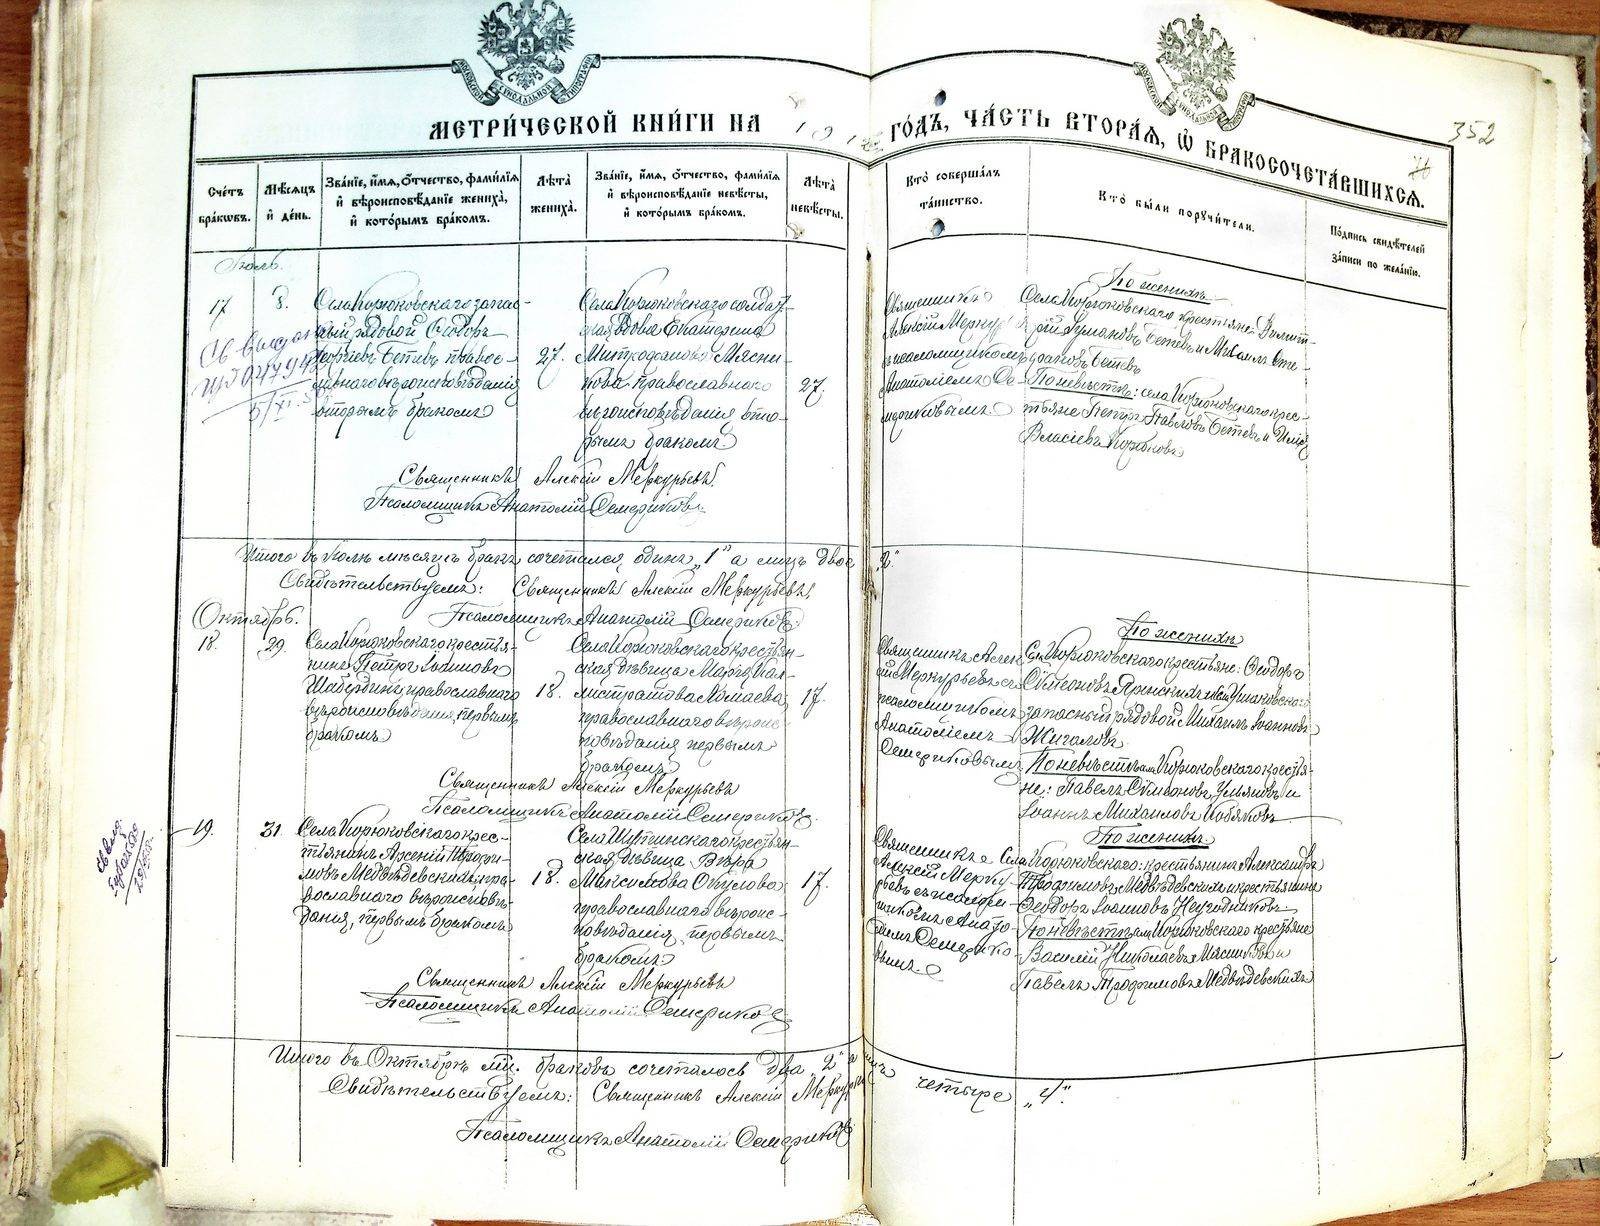 МЕТРИ́ЧЕСКОЙ КНИ́ГИ НА 191 ГО́ДЪ, ЧА́СТЬ ВТОРА́Я, Ѡ БРАКОСОЧЕТА́ВШИХСЯ.
352
76
Сче́тъ бра́ковъ.
Мѣ́сяцъ и́ де́нь.
Зва́нїе, и́мя, о́тчество, фами́лїя и́ вѣроисповѣ́данїе жениха̀, и́ кото́рымъ бра́комъ.
Лѣ́та жениха̀.
Зва́нїе, и́мя, о́тчество, фами́лїя и́ вѣроисповѣ́данїе невѣ́сты, и́ кото́рымъ бра́комъ.
Лѣ́та невѣ́сты.
Кто̀ соверша́лъ та́инство.
Кто̀ бы́ли порꙋчи́тели.
По́дпись свидѣ́телей за́писи по жела́нїю.
Іюль.
17
8.
Села Корюковскаго запас-
ный рядовой Ѳеодоръ
Бетевъ правос-
лавнаго вѣроисповѣданія
вторымъ бракомъ
27.
Села Корюковскаго солдат-
ская вдова Екатерина
Митрофанова Мясни-
кова православнаго
вѣроисповѣданія вто-
рымъ бракомъ.
27.
Священникъ
Алексій Меркурь
псаломщикомъ
Анатоліемъ Се-
мериковымъ.
По женихѣ
Села Корюковскаго, крестьяне
Бетевъ и Михаилъ
Бетевъ
По невѣстѣ: села Корюковскаго крес-
тьяне Петръ Павловъ Бетевъ и Илія
Власіевъ
Священникъ Алексій Меркурьевъ
Псаломщикъ Анатолій Семериковъ
Итого въ Іюлѣ мѣсяцѣ бракъ сочетался одинъ „1" а лицъ двое „2".
Свидѣтельствуемъ: Священникъ Алексій Меркурьевъ
Псаломщикъ Анатолій Семериковъ
Октябрь.
18.
29.
Села Корюковскаго крестья-
нинъ Петръ
православнаго
вѣроисповѣданія, первымъ
бракомъ
18.
Села Корюковскаго крестьян-
ская дѣвица Марія Кал-
листратова
православнаго вѣроис-
повѣданія первымъ
бракомъ
17.
Священникъ Алек
сій Меркурьевъ съ
псаломщикомъ
Анатоліемъ
Семериковымъ
По женихѣ
Села Корюковскаго крестьяне: Ѳеодоръ
Сѵмеоновъ
запасный рядовой Михаилъ Іоанновъ
Жигаловъ
По невѣстѣ: Корюковскаго крестья-
не: Павелъ Сѵмеоновъ Ульяновъ и
Іоаннъ Михаиловъ
Священникъ Алексій Меркурьевъ
Псаломщикъ Анатолій Семериковъ.
19.
31.
Села Корюковскаго крес-
тьянинъ Арсеній Трофи-
мовъ Медвѣдевскихъ, пра-
вославнаго вѣроисповѣ-
данія, первымъ бракомъ
18.
Села Шутинскаго крестьян-
ская дѣвица Вѣра
Максимова Окулова
православнаго вѣроис-
повѣданія, первымъ
бракомъ.
17.
Священникъ
Алексій Мерку
рьевъ съ псалом
щикомъ Анато
ліемъ Семерико-
вымъ.
По женихѣ.
Села Корюковскаго: крестьянинъ Александръ
Трофимовъ Медвѣдевскихъ и крестьянинъ
Ѳеодоръ Іоанновъ Негодниковъ
По невѣстѣ: Корюковскаго крестьяне
Василій Николаевъ Мясниковъ и
Павелъ Трофимовъ Медвѣдевскихъ
Священникъ Алексій Меркурьевъ
Псаломщикъ Анатолій Семериковъ
Итого въ Октябрѣ мцѣ. браковъ сочеталось два „2" а лицъ четыре „4".
Свидѣтельствуемъ: Священникъ Алексій Меркурьевъ
Псаломщикъ Анатолій Семериковъ